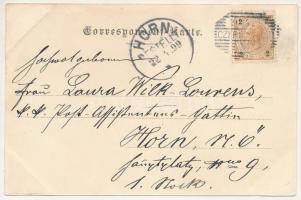 Correspondenz-Karte.
HORN
22 99
Hochwolgeboren
Frau Laura Wilk-Lourens,
k. k. Post-Assistentens-Gattin
Horn, N. Ö.
Hauptplatz, Nro 9,
1. Stock.